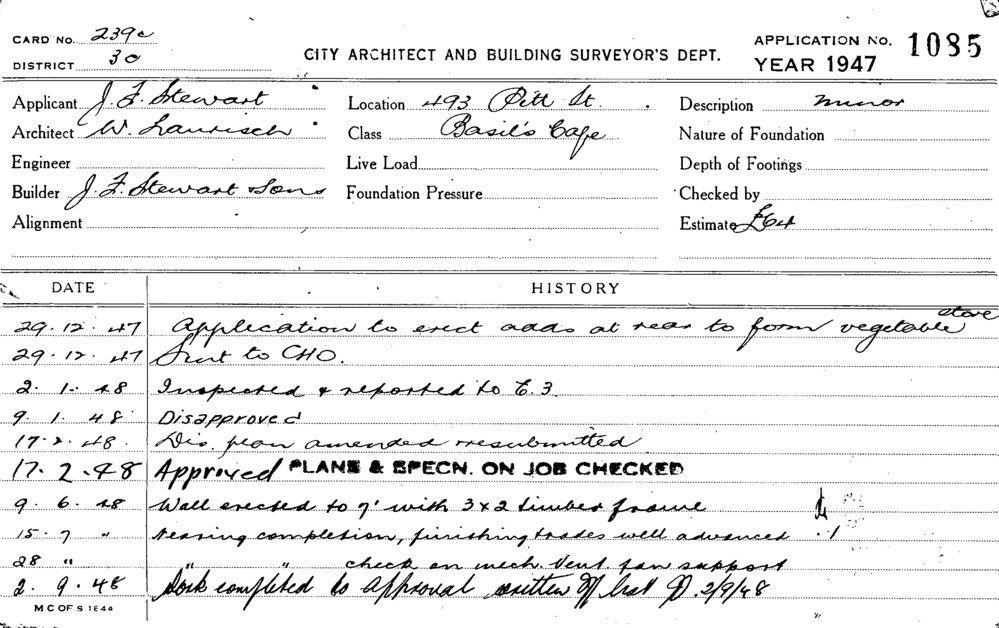 CARD No. 239c
DISTRICT 30
CITY ARCHITECT AND BUILDING SURVEYOR'S DEPT.
APPLICATION No. 1085
YEAR 1947
Applicant J. F. Stewart
Location 493 Pitt St.
Description minor
Architect W. Laurisch
Class Basil's Cafe
Nature of Foundation
Engineer
Live Load
Depth of Footings
Builder J. F. Stewart & Sons
Foundation Pressure
Checked by
Alignment
Estimate £64
DATE HISTORY
29.12.47 Application to erect adds at rear to form vegetable store
29.12.47 Sent to CHO.
2.1.48 Inspected & reported to E.3
9.1.48 Disapproved
17.2.48. Dis. plan amended resubmitted
17.2.48 Approved PLANS & SPECN. ON JOB CHECKED
9.6.48 Wall erected to 7' with 3x2 timber frame
15.7 " Nearing completion, finishing trades well advanced
28 " " " check on mech. Vent. fan support
2.9.48 Work completed to approval written off list 2/9/48
M C OF S 1844